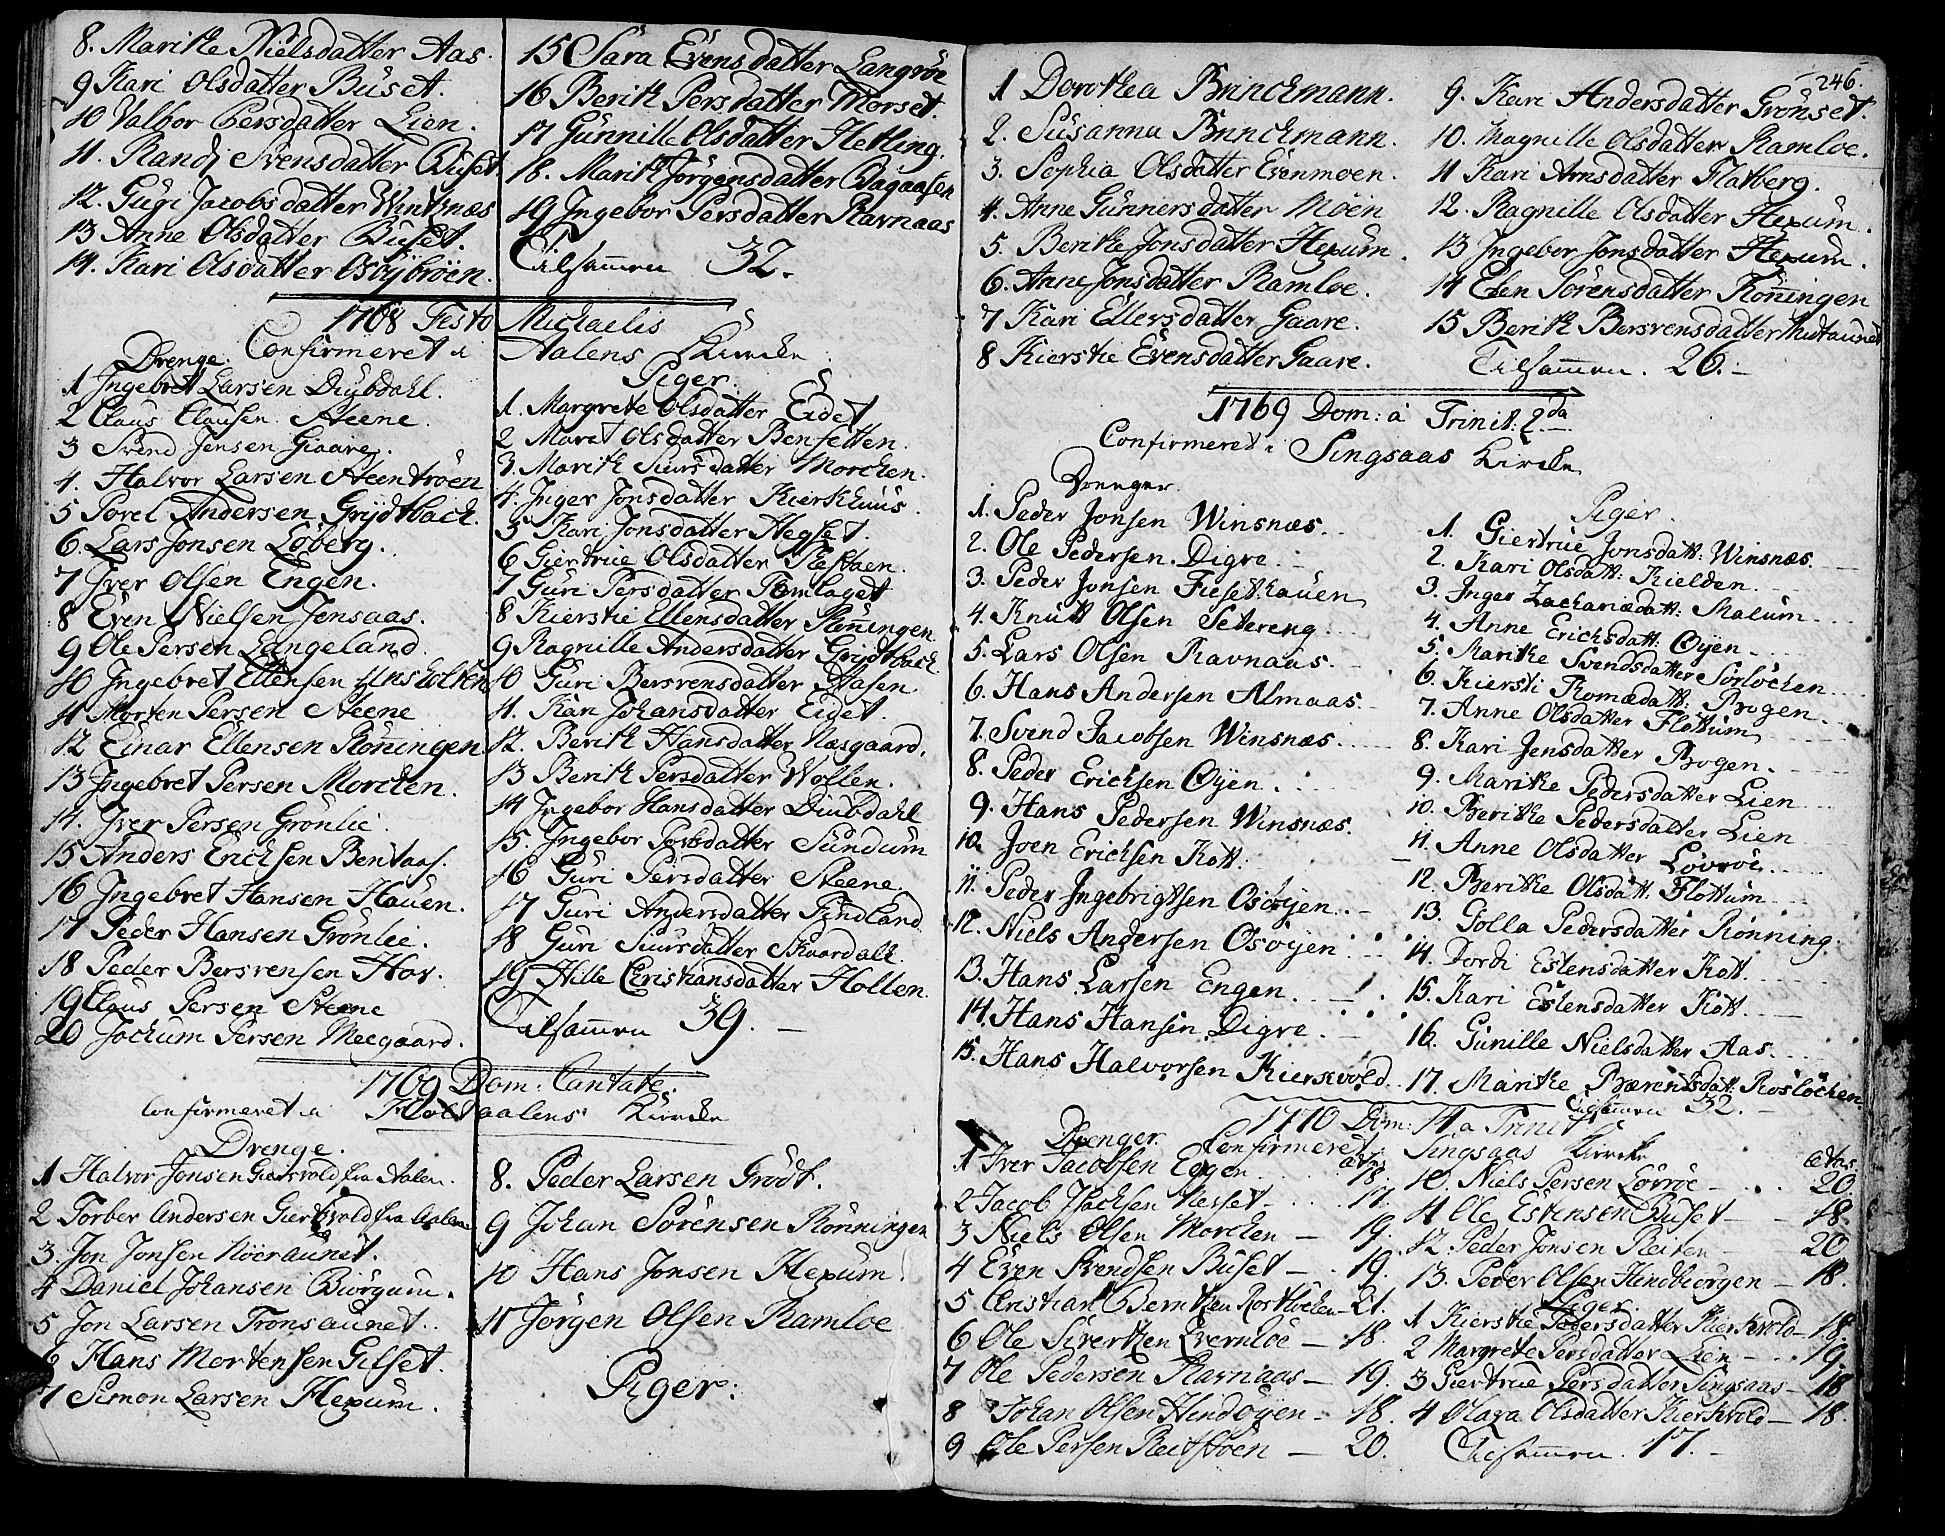 8. Marithe Nielsdatter Aas.
9 Kari Olsdatter Buset.
10 Valbor Persdatter Lien.
11. Randj Svensdatter Buset
12. Guri Jacobsdatter Wintznæs
13 Anne Olsdatter Buset.
14. Kari Olsdatter Osøybröen.
15 Sara Evensdatter Langröe
16 Berith Persdatter Morset.
17 Gunnille Olsdatter Hetling.
18. Marith Jörgensdatter Bagaasen
19 Ingebor Persdatter Ravnaas
Tilsammen 32.
1768 Festo Michaelis
Confirmeret i Aalens Kircke
Drenge.
1 Ingebret Larsen Diubdahl.
2 Claus Clausen Steene.
3 Svend Jensen Giaare.
4. Halvor Larsen Steentröen
5 Porel Andersen Grydtback.
6. Lars Jonsen Löberg.
7 Iver Olsen Engen.
8 Even Nielsen Jensaas.
9 Ole Persen Langeland.
10 Ingebret Ellensen
11 Morten Persen Steene
12 Einar Ellensen Rönningen
13 Ingebret Persen Morchen.
14. Iver Persen Grönlie.
15 Anders Ericksen Bentaas.
16 Ingebret Hansen Hauen.
17 Peder Hansen Grönlie.
18 Peder Bersvensen Hov.
19 Claus Persen Steene
20 Jochum Persen Meegaard.
Piger.
1. Margrete Olsdatter Eidet
2 Maret Olsdatter Bensetten.
3. Marith Siursdatter Morchen.
4. Inger Jonsdatter Kierkhuus.
5 Kari Jonsdatter Hegset.
6 Giertrue Olsdatter
7 Guri Persdatter Ramlaget
8 Kierstie Ellensdatter Rönningen
9 Ragnille Andersdatter Grydtback
10 Guri Bersvensdatter Aasen
11. Kari Johansdatter Eidet.
12. Berith Hansdatter Næsgaard.
13 Berith Persdatter Wollen.
14 Ingebor Hansdatter Diubdahl
15. Ingebor Persdatter Sundum
16 Guri Persdatter Steene.
17 Guri Andersdatter Findland
18 Guri Siursdatter Skaardall
19 Hille Christiansdatter Holten.
Tilsammen 39. –
1769 Dom: Cantate.
Confirmeret i Holtaalens Kircke
Drenge.
1 Halvor Jonsen Giersvold fra Aalen.
2 Torber Andersen Giersvold fra Aalen
3. Jon Jonsen Höeraunet.
4 Daniel Johansen Biorgum.
5 Jon Larsen Tronsaunet.
6 Hans Mortensen Gilset.
7 Simon Larsen Hexum.
8. Peder Larsen Grödt.
9 Johan Sörensen Rönningen
10 Hans Jonsen Hexum.
11 Jörgen Olsen Ramloe
Piger:
246.
1 Dorothea Brinchmann.
2. Susanna Brinchmann.
3. Sophia Olsdatter Evenmoen.
4. Anne Gunnersdatter Moen
5. Berithe Jonsdatter Hexum.
6. Anne Jonsdatter Ramloe.
7 Kari Ellersdatter Gaare.
8 Kierstie Evensdatter Gaare.
9. Kari Andersdatter Grönset.
10. Magnille Olsdatter Ramloe.
11 Kari Arnsdatter Flatberg.
12. Ragnille Olsdatter Hexum.
13 Ingebor Jonsdatter Hexum.
14 Elen Sörensdatter Rönningen
15 Berith Bersvensdatter Midtaunet
Tilsammen. 26. –
1769 Dom: a Trinit: 2da
Confirmeret i Singsaas Kircke
Drenger.
1. Peder Jonsen Winsnæs.
2. Ole Pedersen. Digre.
3. Peder Jonsen Fiesethauen
4. Knutt Olsen Setereng.
5. Lars Olsen Ravnaas.
6. Hans Andersen Almaas.
7. Svend Jacobsen Winsnæs.
8. Peder Ericksen Øyen.
9. Hans Pedersen Winsnæs.
10. Joen Ericksen Kott.
11. Peder Ingebrigtsen Osøyen.
12. Niels Andersen Osøyen
13. Hans Larsen Engen.
14. Hans Hansen Digre
15. Hans Halvorsen Kierkvold.
Piger.
1. Giertrue Jonsdatt: Winsnæs.
2. Kari Olsdatt: Kielden.
3. Inger Zachariædatt: Malum.
4. Anne Ericksdatt. Øyen.
5. Marithe Svendsdatter Sörlöchen
6. Kiersti Thomædatt: Bogen.
7. Anne Olsdatter Flottum
8. Kari Jensdatter Bogen.
9. Marithe Pedersdatter Lien
10. Berithe Pedersdatter Lien
11. Anne Olsdatter Lövröe.
12. Berithe Olsdatt. Flottum
13. Golla Pedersdatter Rönning.
14. Dordi Estensdatter Kott.
15. Kari Estensdatter Kott.
16. Gunille Nielsdatter Aas.
17. Marithe Bærentsdatt: Roslöchen.
Tilsammen 32. –
1770 Dom: 14 a Trinit
Confirmeret Singsaas Kircke
Drenger.
ætas
1 Iver Jacobsen Eggen 18.
2 Jacob Isachsen Herset – 17.
3 Niels Olsen Morchen – 19.
4 Even Svendsen Buset – 19.
5 Christian Berntsen Roslöchen – 21.
6 Ole Sivertsen Evernloe – 18.
7 Ole Pedersen Ravnaas – 19.
8 Johan Olsen Hindöyen – 18.
9 Ole Persen Reitsløen – 20.
ætas.
10. Niels Persen Lövröe – 20.
11 Ole Estensen Buset – 18.
12. Peder Jonsen Reiten – 20
13. Peder Olsen Hindbiorgen – 18.
Piger.
1 Kierstie Pedersdatter Kierkvold – 18.
2 Margrete Persdatter Lien – 19.
3 Giertrue Persdatter Singsaas – 18
4 Olaza Olsdatter Kierkvold – 18.
Tilsammen. 17. –